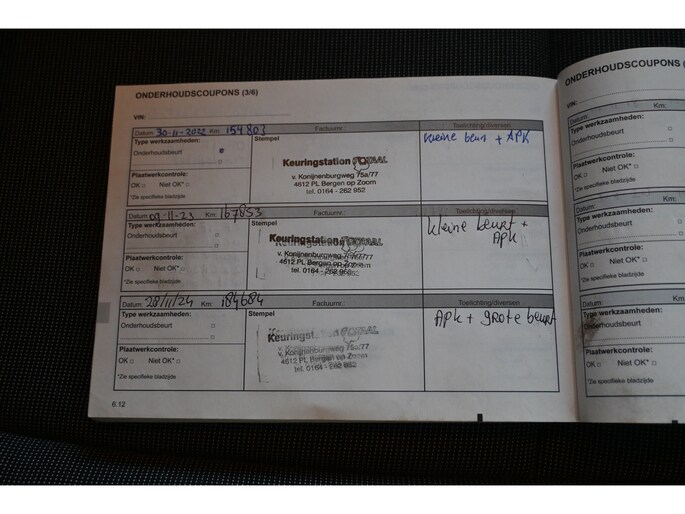 ONDERHOUDSCOUPONS (3/6)
VIN:
Datum: 30-11-2022 Km: 154803
Factuurnr.:
Toelichting/diversen
Type werkzaamheden:
Onderhoudsbeurt
Stempel
Keuringstation
v. Konijnenburgweg 75a/77
4612 PL Bergen op Zoom
tel. 0164 - 262 952
kleine beurt + APK
Plaatwerkcontrole:
OK Niet OK*
*Zie specifieke bladzijde
Datum: 09-11-23 Km: 167853
Factuurnr.:
Toelichting/diversen
Type werkzaamheden:
Onderhoudsbeurt
Stempel
Keuringstation
v. Konijnenburgweg 75a/77
4612 PL Bergen op Zoom
tel. 0164 - 262 952
kleine beurt +
APK
Plaatwerkcontrole:
OK Niet OK*
*Zie specifieke bladzijde
Datum: 28/11/24 Km: 184684
Factuurnr.:
Toelichting/diversen
Type werkzaamheden:
Onderhoudsbeurt
Stempel
Keuringstation
v. Konijnenburgweg 75a/77
4612 PL Bergen op Zoom
tel. 0164 - 262 952
APK + grote beurt
Plaatwerkcontrole:
OK Niet OK*
*Zie specifieke bladzijde
6.12
ONDERHOUDSCOUPONS (
VIN:
Datum: Km:
Type werkzaamheden:
Onderhoudsbeurt
Plaatwerkcontrole:
OK Niet OK*
*Zie specifieke bladzijde
Datum: Km:
Type werkzaamheden:
Onderhoudsbeurt
Plaatwerkcontrole:
OK Niet OK*
*Zie specifieke bladzijde
Datum: Km:
Type werkzaamheden:
Onderhoudsbeurt
Plaatwerkcontrole:
OK Niet OK*
*Zie specifieke bladzijde